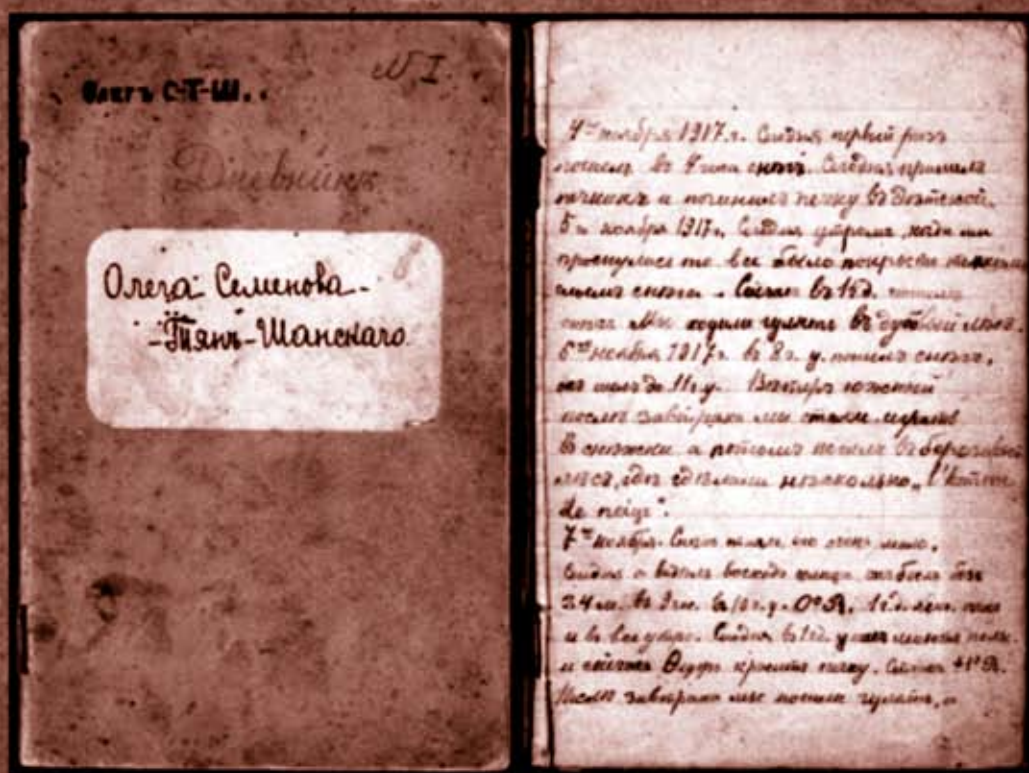 Олегъ С-Т-Ш.
№ I.
Дневникъ
Олега Семенова-
-Тянъ-Шанскаго
4го ноября 1917 г. Сегодня первый разъ
въ снѣгъ. Сегодня пришелъ
печникъ и починилъ печку въ дѣтской.
5го ноября 1917 г. Сегодня утромъ, когда мы
проснулись то все было покрыто
снѣга. Сейчасъ въ 1 ч. д.
снѣгъ Мы ходили гулять въ дубовый лѣсъ.
6го ноября 1917 г. въ 8 ч. у. пошелъ снѣгъ,
онъ шелъ до 11 ч. у. Вѣтеръ южный
послѣ завтрака мы стали играть
въ снѣжки а потомъ пошли въ березовый
лѣсъ, гдѣ сдѣлали нѣсколько „l'homme
de neige".
7го ноября. Снѣгъ но очень мало.
Сегодня я видѣлъ восходъ солнца
въ 10 ч. у. 0° R.
и въ все утро. Сегодня въ 1 ч. д. у
и сейчасъ печку. +1° R.
Послѣ завтрака мы пошли гулять, а